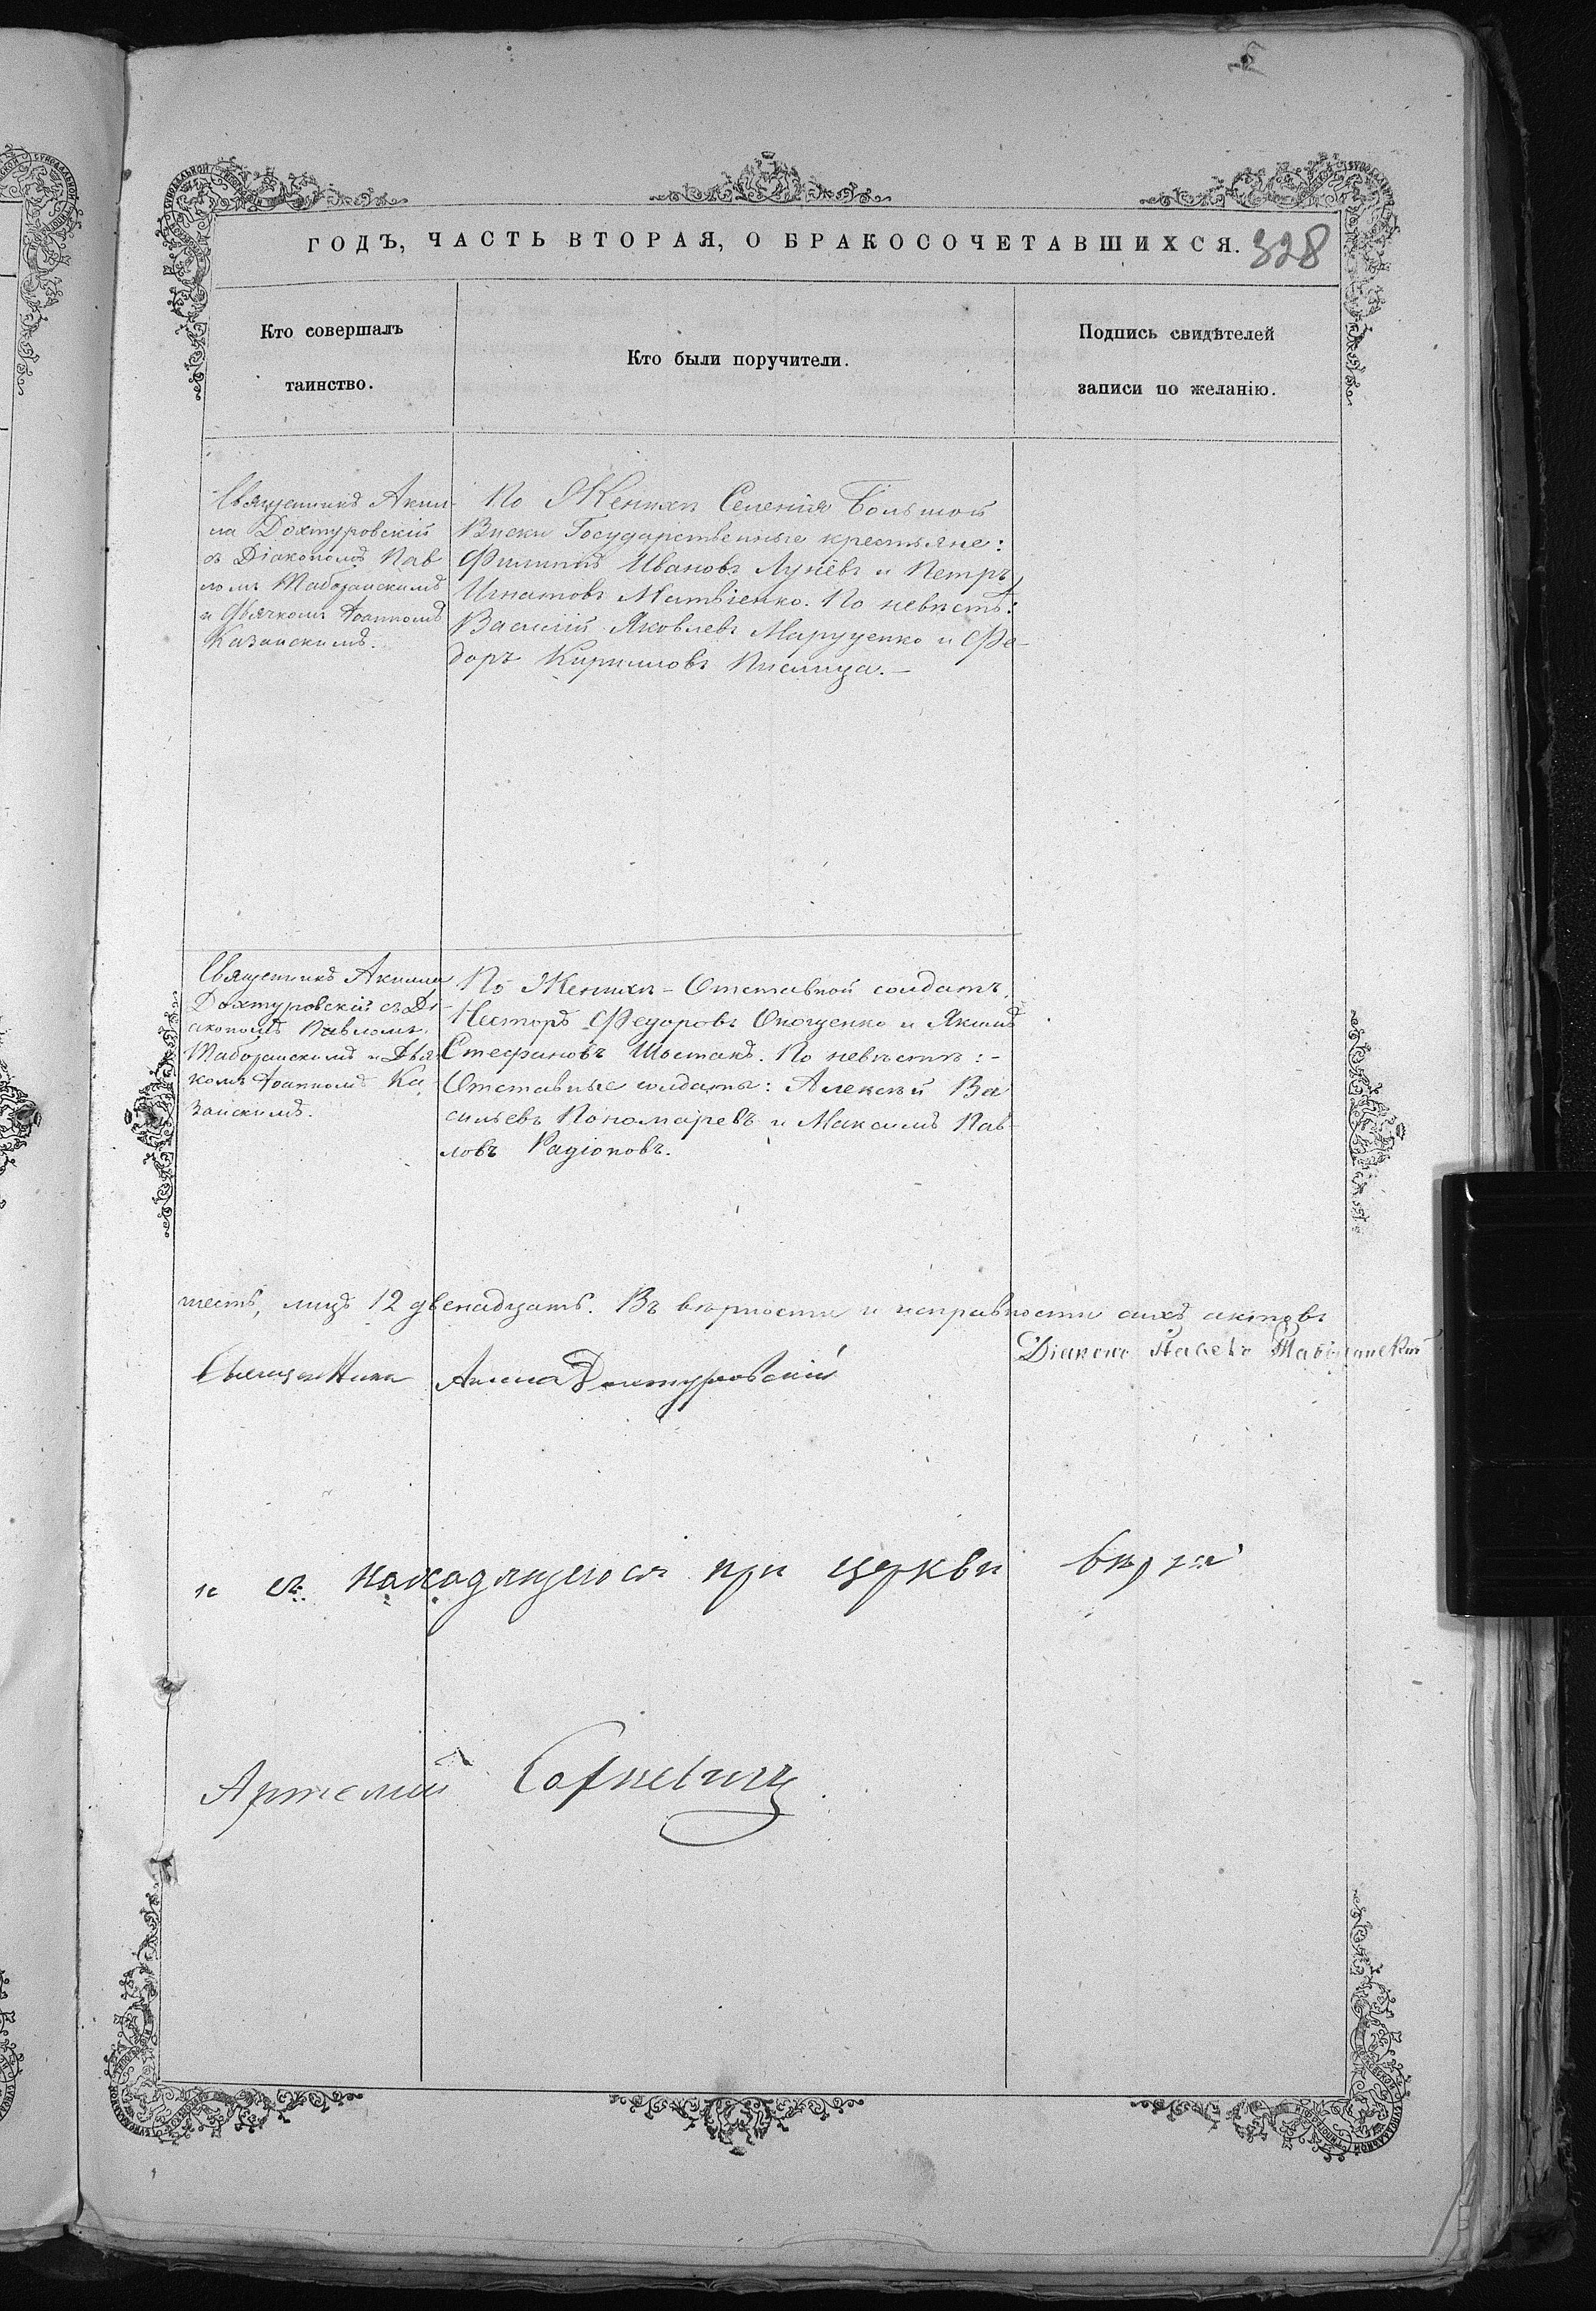 ГОДЪ, ЧАСТЬ ВТОРАЯ, О БРАКОСОЧЕТАВШИХСЯ. 328
Кто совершалъ
таинство.
Кто были поручители.
Подпись свидѣтелей
записи по желанію.
Священникъ Аки-
ла Дохтуровскій
съ Діакономъ Пав
ломъ Таборанскимъ
и Дьячкомъ Іоанномъ
Казанскимъ.
По Женихѣ Селенія Большой
Виски Государственные крестьяне:
Филиппъ Ивановъ Лунёвъ и Петръ
Игнатовъ Матвіенко. По невѣстѣ:
Василій Яковлевъ Марущенко и Фе-
доръ Кирилловъ Писмица. —
Священникъ Акила
Дохтуровскій съ Ді-
акономъ Павломъ
Таборанскимъ и Дьяч
комъ Іоанномъ Ка
занскимъ.
По Женихѣ - Отставной солдатъ
Несторъ Федоровъ Онощенко и Якимъ
Стефановъ Шостакъ. По невѣстѣ: -
Отставные солдаты: Алексѣй Ва
сильевъ Пономаревъ и Максимъ Пав
ловъ Радіоновъ.
шесть, лицъ 12 двенадцать. Въ вѣрности и исправности сихъ актовъ
Священникъ Акила Дохтуровскій
Діаконъ Павелъ Таборанскій
и съ находящеюся при церкви
Артемій